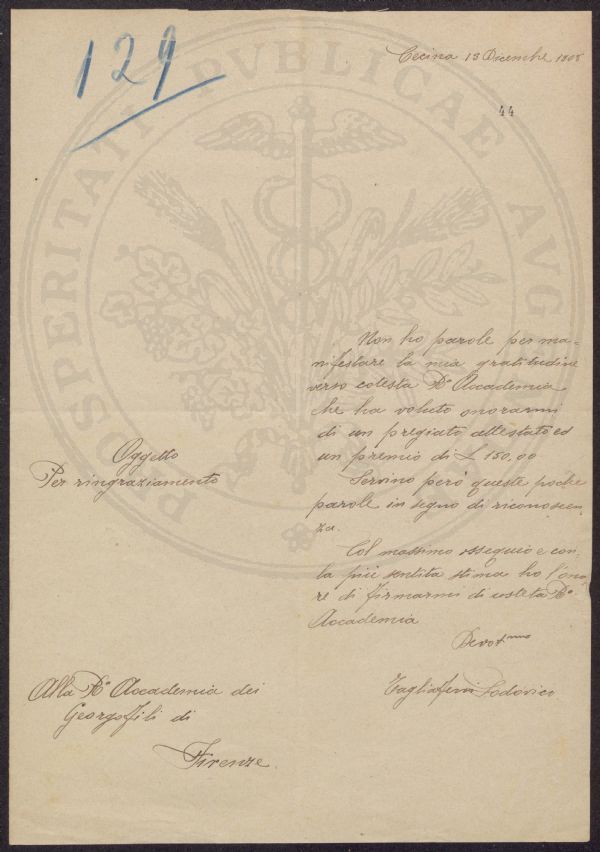 129
Cecina 13 Dicembre 1905
44
PROSPERITATI PVBLICAE AVG
Non ho parole per ma-
nifestare la mia gratitudine
verso cotesta Rª Accademia
che ha voluto onorarmi
di un pregiato attestato ed
un premio di £ 150,00
Servino però queste poche
parole in segno di riconoscen-
za.
Col massimo ossequio e con
la più sentita stima ho l'ono-
re di firmarmi di cotesta Rª
Accademia
Devotmo
Tagliaferri Lodovico
Oggetto
Per ringraziamento
Alla Rª Accademia dei
Georgofili di
Firenze